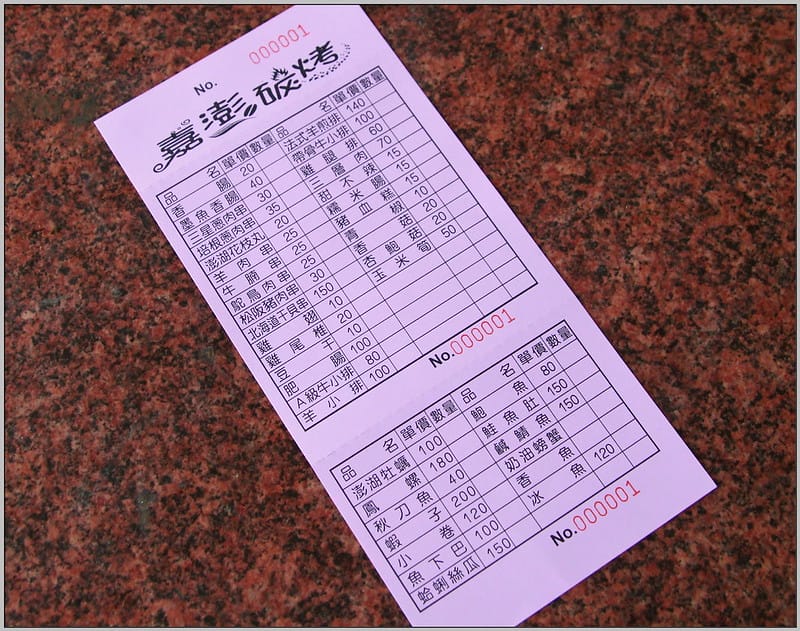 No. 000001
嘉澎碳烤
品名 單價 數量
香腸 20
墨魚香腸 40
三星蔥肉串 30
培根蔥肉串 35
澎湖花枝丸 20
羊肉串 25
牛腩串 25
鴕鳥肉串 25
松阪豬肉串 30
北海道干貝串 150
雞翅 10
雞尾椎 20
豆干 10
肥腸 100
A級牛小排 80
羊小排 100
品名 單價 數量
法式羊煎排 140
帶骨牛小排 100
雞腿排 60
三層肉 70
甜不辣 15
糯米腸 15
豬血糕 15
青椒 10
香菇 20
杏鮑菇 20
玉米筍 50
No.000001
品名 單價 數量
澎湖牡蠣 100
鳳螺 180
秋刀魚 40
蝦子 200
小卷 120
魚下巴 100
蛤蜊絲瓜 150
品名 單價 數量
鮑魚 80
鮭魚肚 150
鹹鯖魚 150
奶油螃蟹
香魚
冰魚 120
No.000001